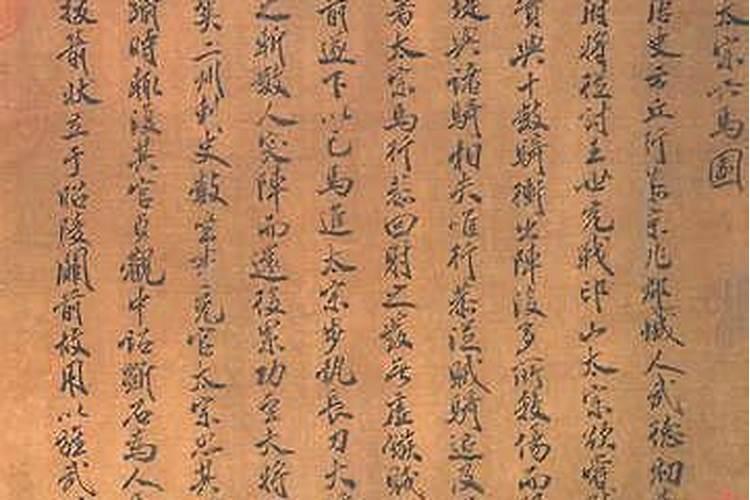 太宗六馬圖
唐史云丘行恭京兆郿城人武德初
府將從討王世充戰邙山太宗欲
賓與十數騎衝出陣後多所殺傷而
堤與諸騎相失唯行恭從賊騎追及
著太宗馬行恭回射之發無虛鏃賊
前遂下以己馬進太宗步執長刀大
之斬數人突陣而還後累功至大將
冀二州刺史數坐免官太宗思其
時輒復其官貞觀中詔斲石為人
拔箭狀立于昭陵闕前以旌武